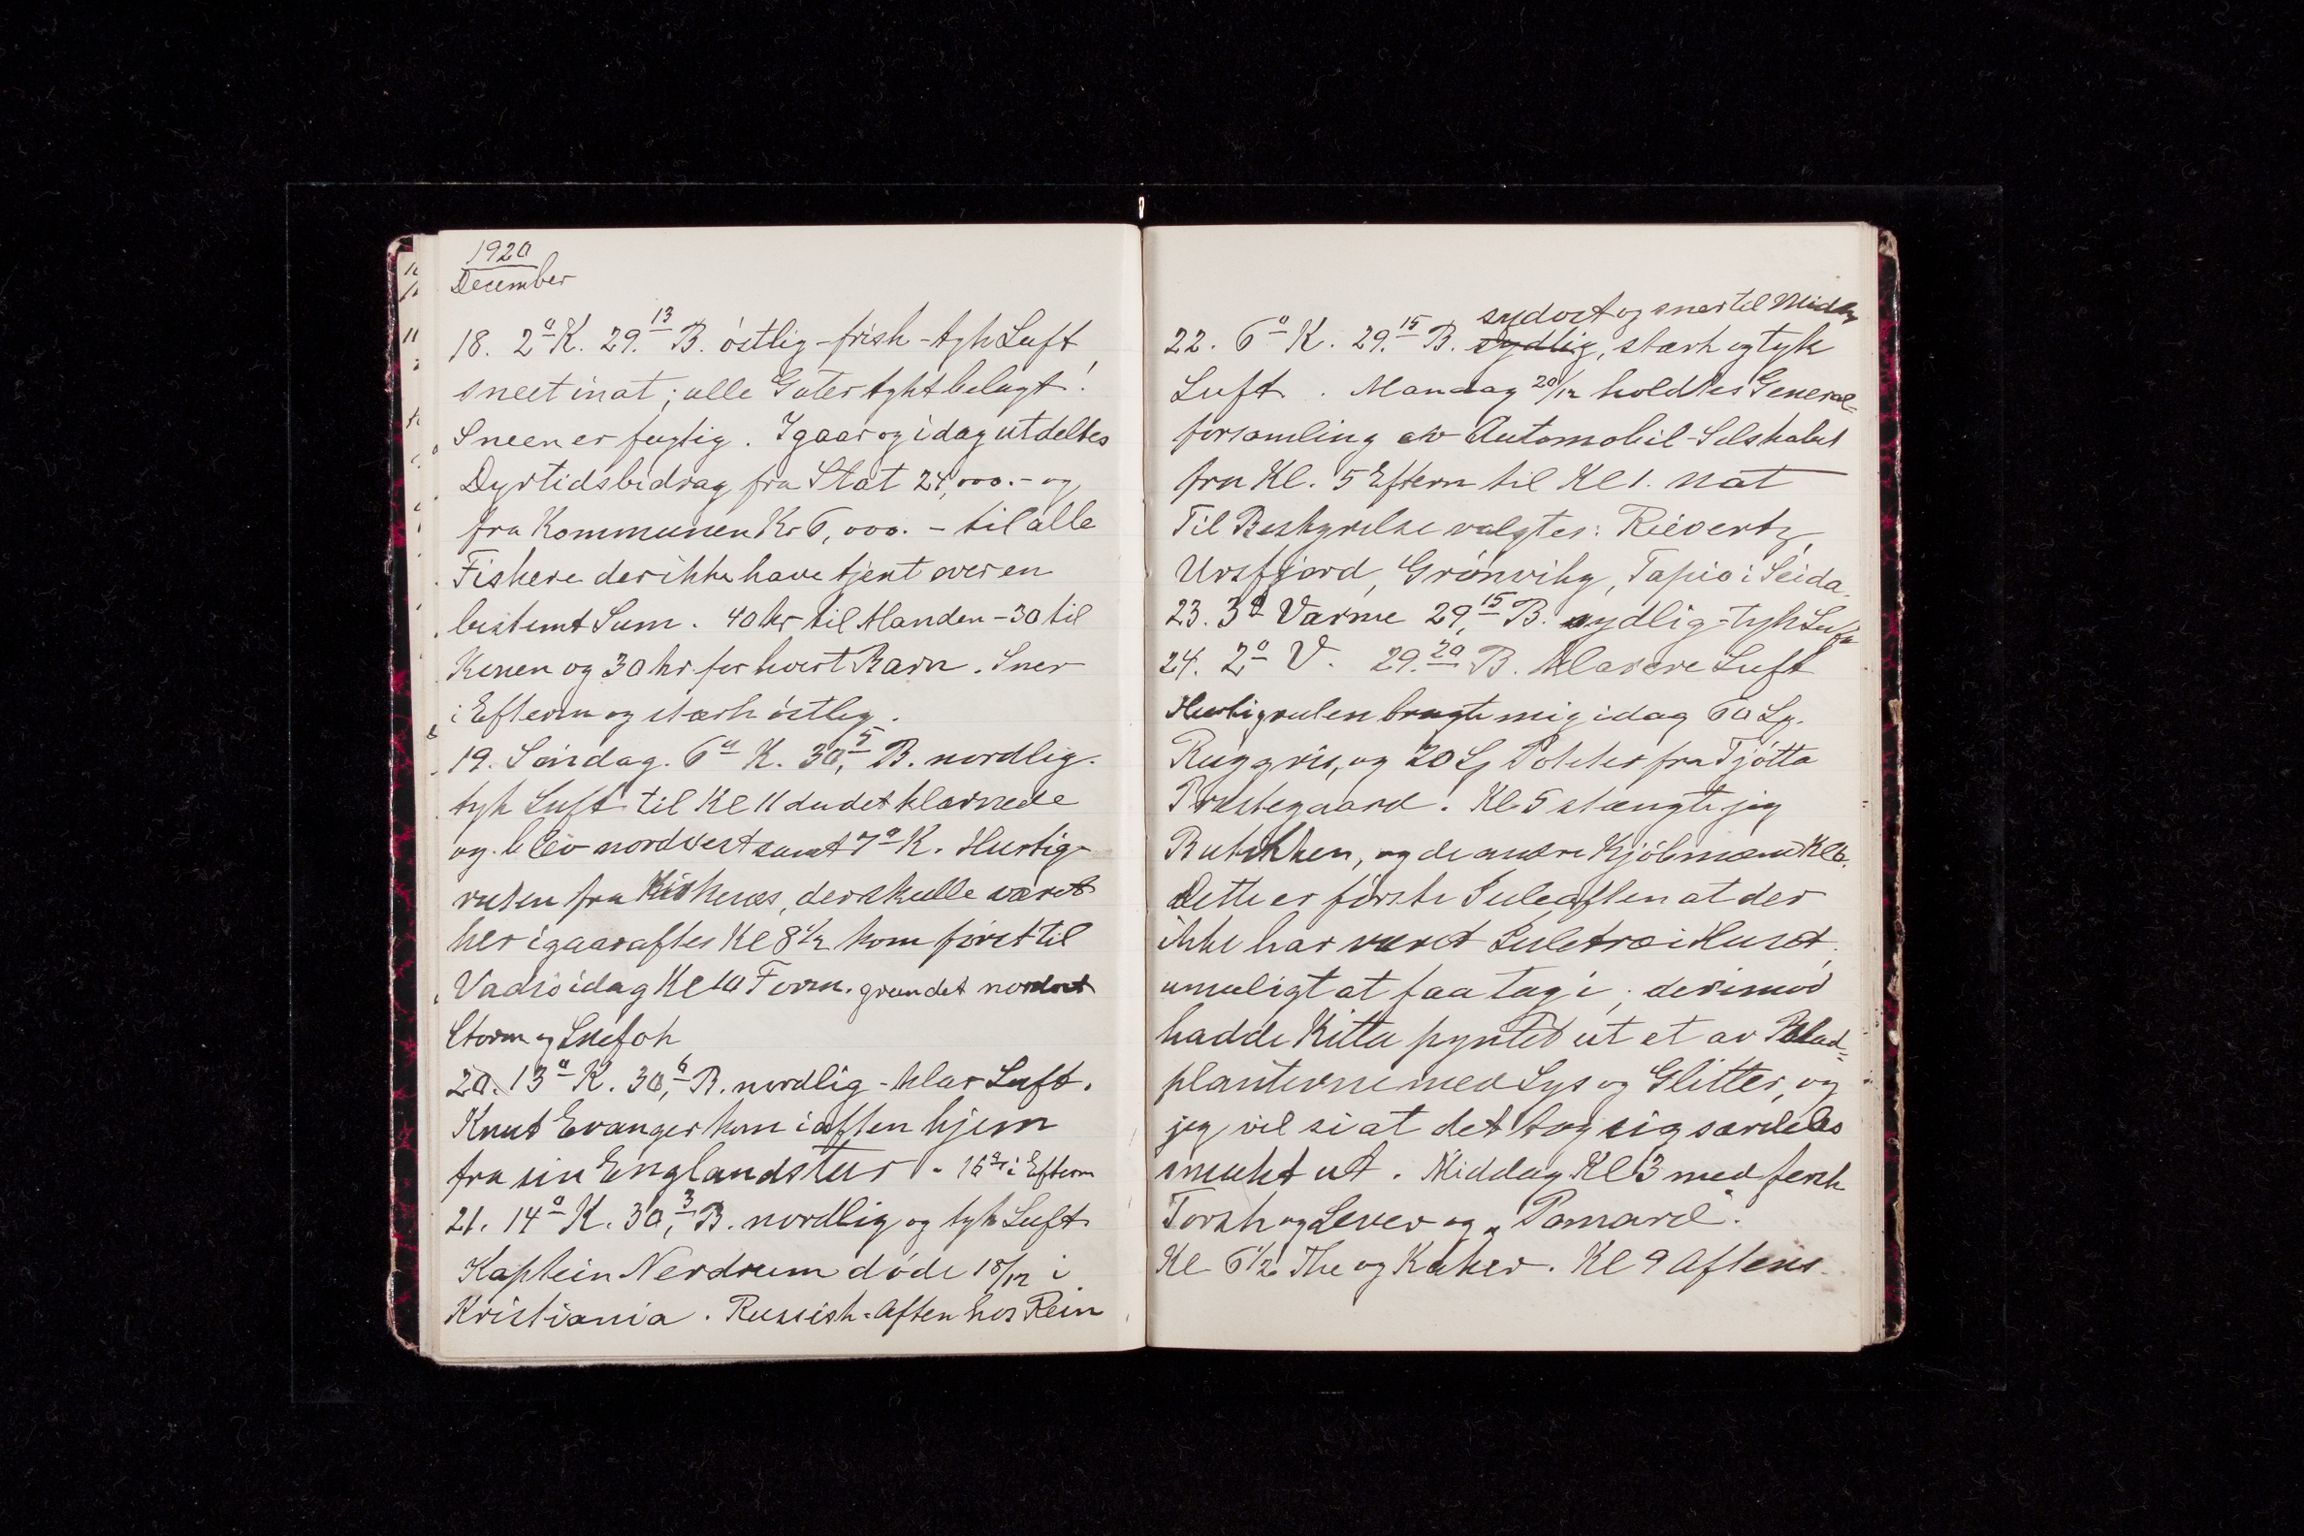 1920
December
18. 2° K. 29.13 B. östlig - frisk - tyk Luft
sneet inat; alle Gater tykt belagt!
Sneen er fugtig. Igaar og idag utdeltes
Dyrtidsbidrag fra Stat 24,000.- og
fra Kommunen Kr 6,000.- til alle
Fiskere der ikke have tjent over en
bestemt Sum. 40 kr til Manden - 30 til
Konen og 30 kr for hvert Barn. Sner
i Efterm og stærk östlig.
19. Söndag. 6° K. 30,5 B. nordlig.
tyk Luft til Kl 11 da det klarnede
og blev nordvest samt 7° K. Hurtig-
ruten fra Kirkenæs, der skulle været
her igaaraftes Kl 8 1/2 kom först til
Vadsö idag Kl 10 Form. grundet nordost
Storm og Snefok
20. 13° K. 30,6 B. nordlig - klar Luft.
Knut Evanger kom i aften hjem
fra sin Englandstur. - 16° i Efterm
21. 14° K. 30,3 B. nordlig og tyk Luft
Kaptein Nerdrum döde 18/12 i
Kristiania. Russisk=Aften hos Rein
sydost og sner til Middag
22. 6° K. 29.15 B. sydlig, stærk og tyk
Luft. Mandag 20/12 holdtes General=
forsamling av Automobil-Selskabet
fra Kl. 5 Efterm til Kl 1. nat
Til Bestyrelse valgtes: Rievertz,
Ursfjord, Grönvihg, Tapio i Seida.
23. 3° Varme 29,15 B. sydlig - tyk Luft
24. 2° V. 29.20 B. klarere Luft
Hurtigruten bragte mig idag 60 Lp.
Ruggris, og 20 Lp Poteter fra Tjötta
Prestegaard. Kl 5 stængte jeg
Butikken, og de andre Kjöbmænd Kl 6.
Dette er förste Juleaften at der
ikke har været Juletræ i Huset,
umuligt at faa tag i; derimod
hadde Kitta pyntet ut et av Blad=
planterne med Lys og Glitter, og
jeg vil si at det tog sig særdeles
smukt ut. Middag Kl 3 med fersk
Torsk og Lever og „Pomaril".
Kl 6 1/2 The og Kaker. Kl 9 Aftens